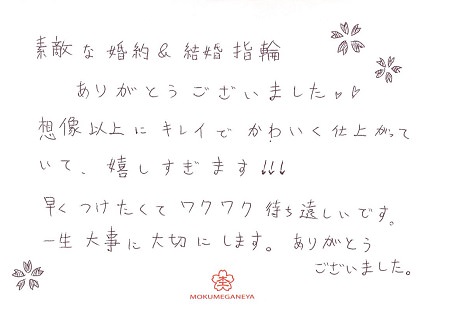 素敵な婚約&結婚指輪
ありがとうございました♡♡
想像以上にキレイでかわいく仕上がって
いて、嬉しすぎます!!!
早くつけたくてワクワク待ち遠しいです。
一生大事に大切にします。ありがとう
ございました。
MOKUMEGANEYA